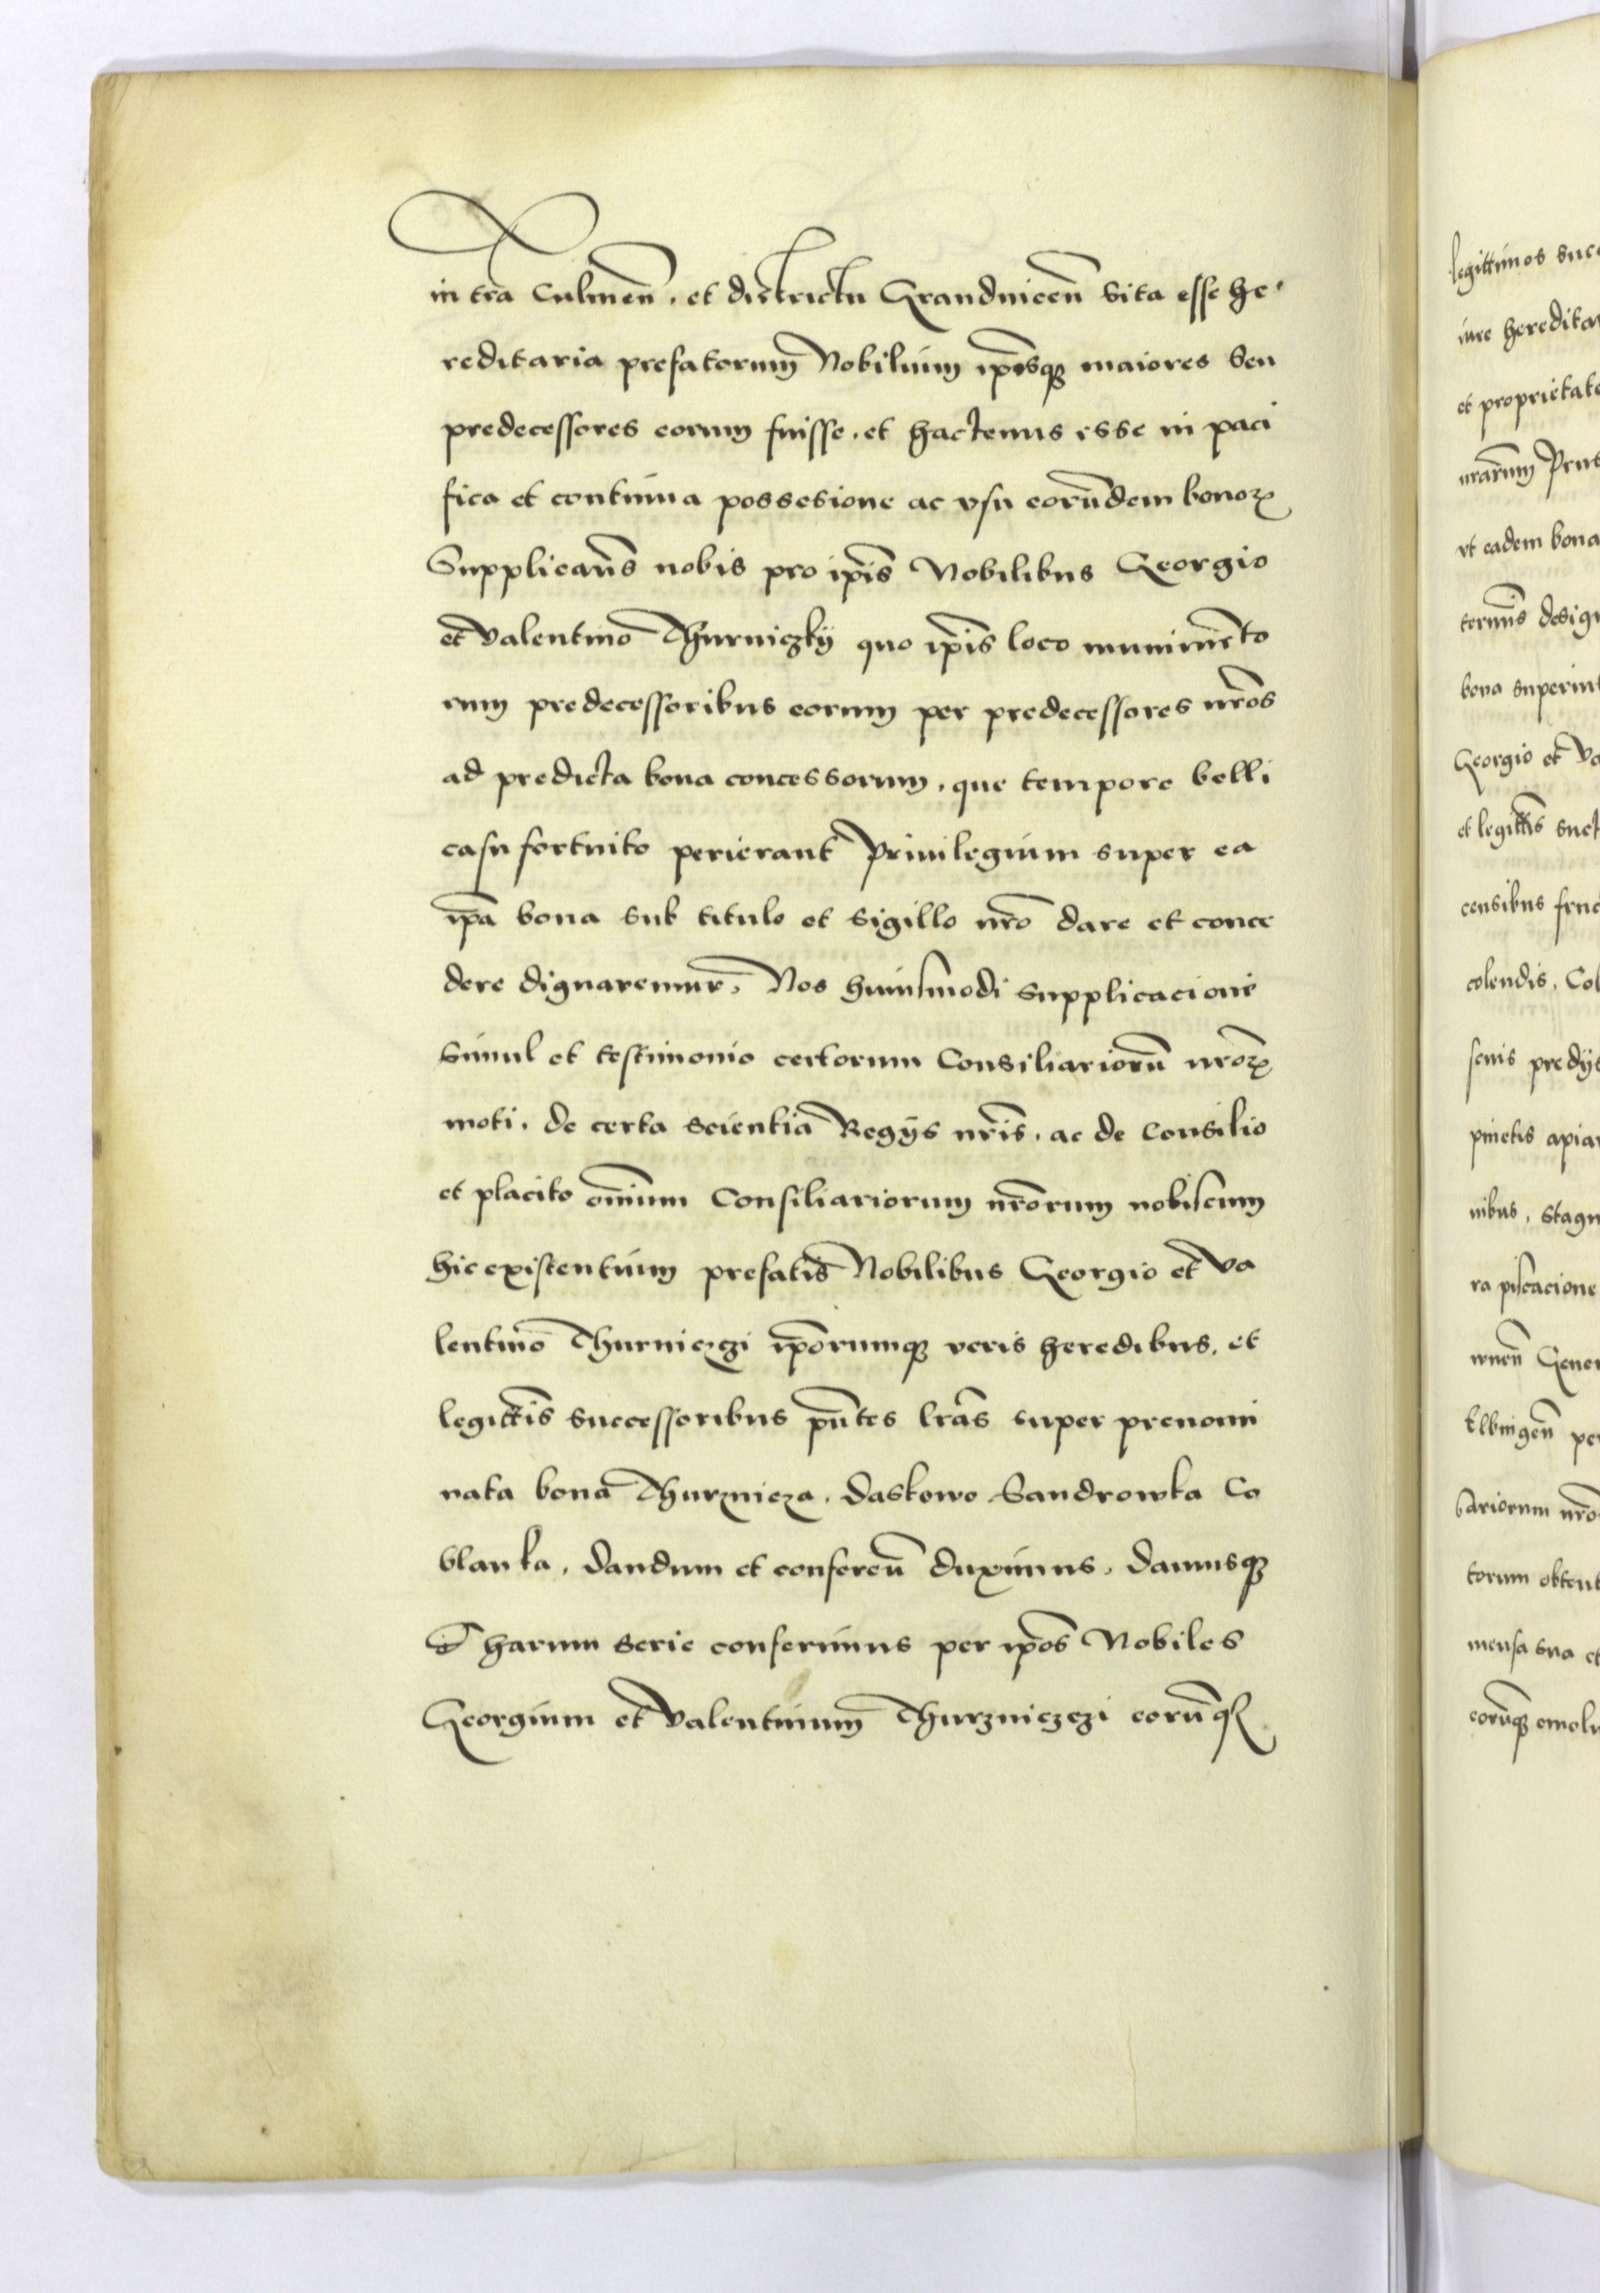 in tr̄a Culmen̄, et districtu Graudnicen̄ sita esse he
reditaria prefatorum Nobilium ip̄osq maiores seu
predecessores eorum fuisse, et hactenus esse in paci
fica et continua possesione ac vsu eorūdem bonoꝝ
Supplican̄s nobis pro ip̄is Nobilibus Georgio
et Valentino Thurniczkÿ quo ip̄is loco munimēto
rum predecessoribus eorum per predecessores nr̄os
ad predicta bona concessorum, que tempore belli
casu fortuito perierant Priuilegium super ea
ip̄a bona sub titulo et sigillo nr̄o dare et conce
dere dignaremur, Nos huiusmodi supplicacione
simul et testimonio certorum Consiliariorū nr̄oꝝ
moti, de certa scientia Regÿs nr̄is, ac de Consilio
et placito om̄ium Consiliariorum nr̄orum nobiscum
hic existentium prefatis Nobilibus Georgio et Va
lentino Thurniczgi ip̄orumq veris heredibus, et
legitt̄is successoribus pn̄tes lr̄as super prenomi
nata bona Thurznicza, Daskowo Sandrowka Co
blanka, dandum et conferen̄ duximus, damusq
Et harum serie conferimus per ip̄os Nobiles
Georgium et Valentinum Thurzniczczi eorūq
legittimos succ
iure heredita
et proprietate
nr̄arum Prus
vt eadem bona
termīs desig
bona superiu
Georgio et Va
et legitt̄is suc
censibus fruc
colendis, Col
fenis predÿs
pinetis apia
nibus, Stagn
ra piscacione
Gener
Elbingen̄ pe
nr̄o
torum obtent
mensa sua et
eorūq emolu